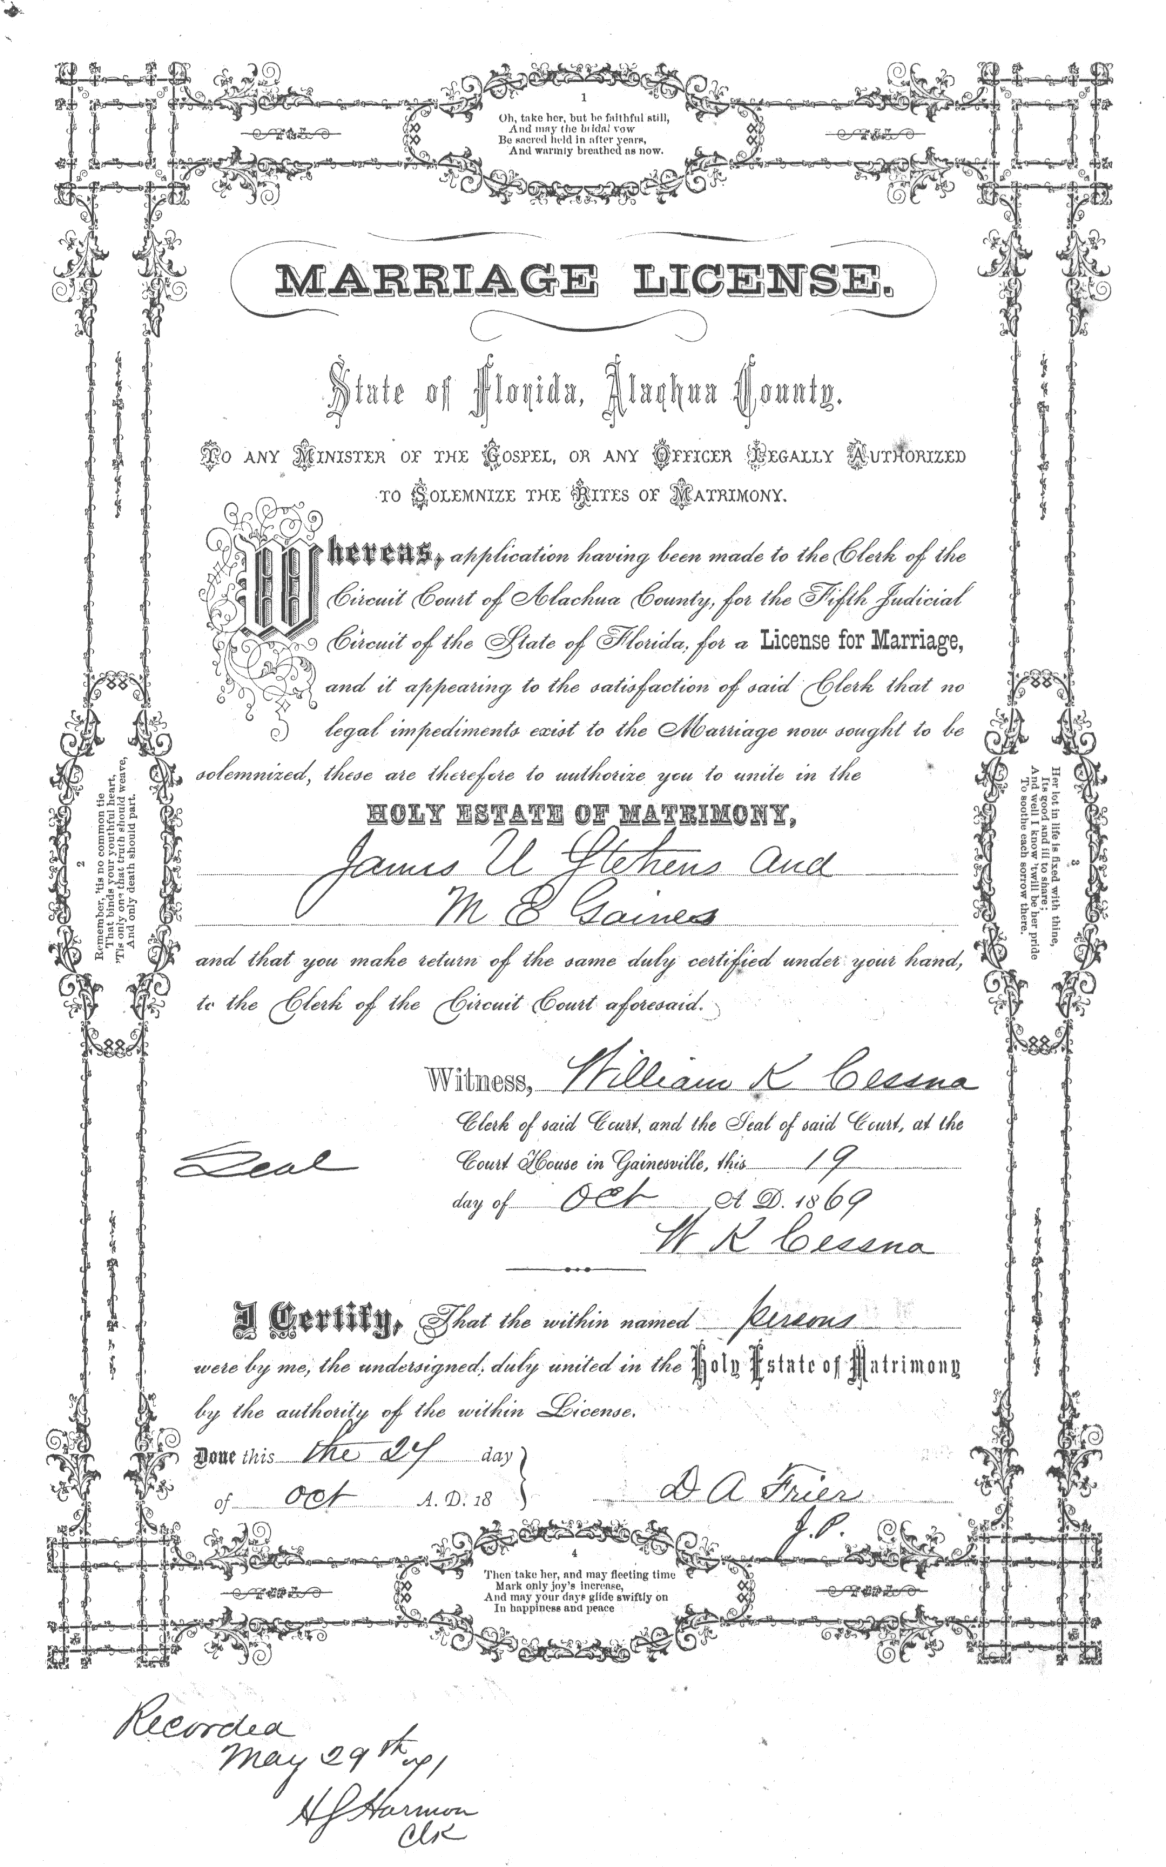 1
Oh, take her, but be faithful still,
And may the bridal vow
Be sacred held in after years,
And warmly breathed as now.
MARRIAGE LICENSE.
State of Florida, Alachua County.
TO ANY MINISTER OF THE GOSPEL, OR ANY OFFICER LEGALLY AUTHORIZED
TO SOLEMNIZE THE RITES OF MATRIMONY.
Whereas, application having been made to the Clerk of the
Circuit Court of Alachua County, for the Fifth Judicial
Circuit of the State of Florida, for a License for Marriage,
and it appearing to the satisfaction of said Clerk that no
legal impediments exist to the Marriage now sought to be
solemnized, these are therefore to authorize you to unite in the
HOLY ESTATE OF MATRIMONY,
James U Stehens and
M E Gaines
and that you make return of the same duly certified under your hand,
to the Clerk of the Circuit Court aforesaid.
Witness, William K Cessna
Clerk of said Court, and the Seal of said Court, at the
Seal
Court House in Gainesville, this 19
day of Oct A D. 1869
W K Cessna
I Certify, That the within named persons
were by me, the undersigned, duly united in the Holy Estate of Matrimony
by the authority of the within License.
Done this the 24 day
of Oct A. D. 18
D A Frier
J.P.
2
Remember, 'tis no common tie
That binds your youthful heart,
'Tis only one that truth should weave,
And only death should part.
3
Her lot in life is fixed with thine,
Its good and ill to share;
And well I know 'twill be her pride
To soothe each sorrow there.
4
Then take her, and may fleeting time
Mark only joy's increase,
And may your days glide swiftly on
In happiness and peace
Recorded
May 29th 71
H J Harmon
Clk